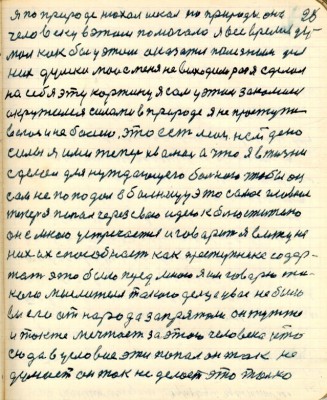 я по природе искал по природы он 25
человеку в этом помогало я все время ду-
мал как бы у этим оказать помощи для
них думки мои с меня не выходили раз я сделал
на себя эту картинку я сам у этим законом
окружился силами в природе я не проступи-
вался и не боюсь, это есть мои, нет дело
силы я ими теперь хвалюсь а что я в жизни
сделал для нуждающего больного чтобы он
сам не попадал в больницу это самое главное
теперя попал через свою идею к
он с мною устречается и говорит я вижу не
них их способност как преступника содер-
жат это было предо мною я им говорю та-
кого мыслителя такого делца у вас не было
вы его от народа запрятали он тужит
и также мечтает за этого человека что
сюда в условия эти попал он так не
думает он так не делает это только